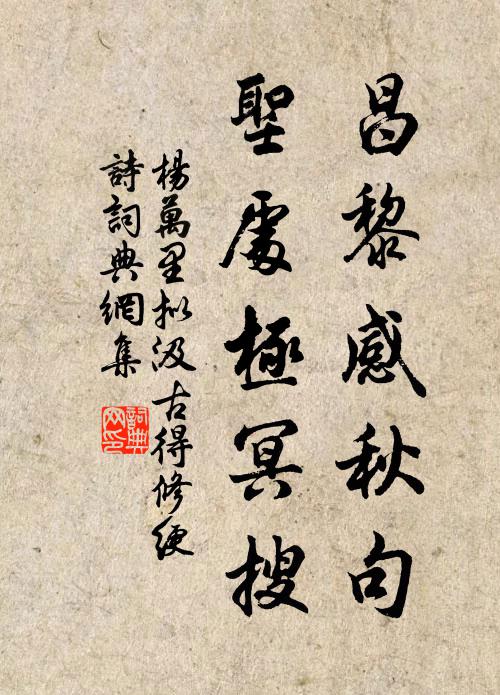 昌黎感秋句
聖處極冥搜
楊萬里擬汲古得修綆
詩詞典網集
詞典網印